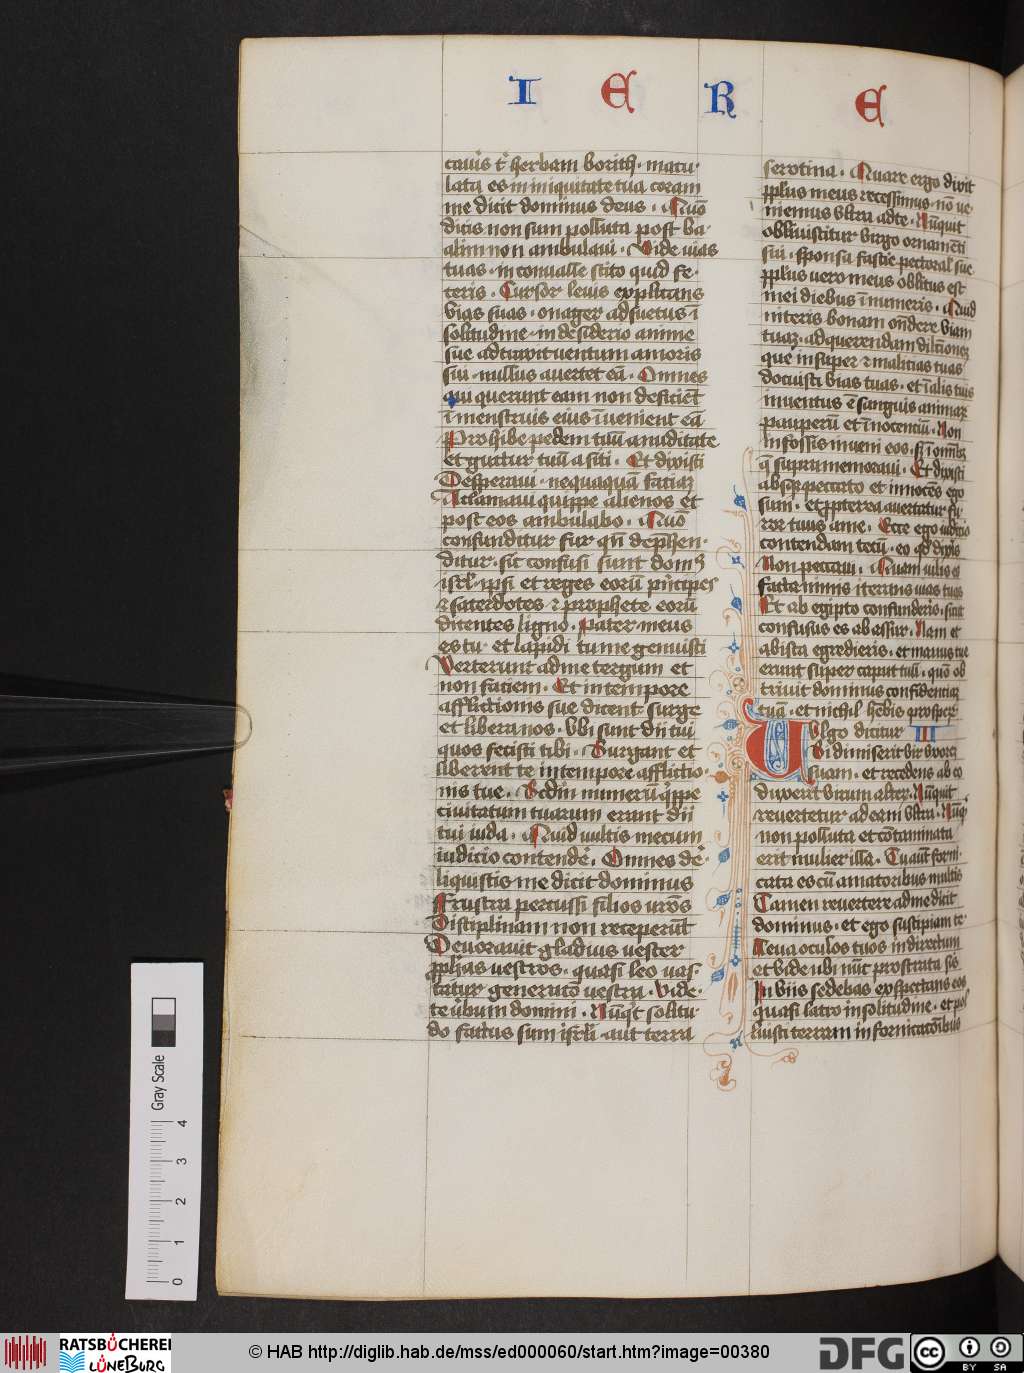 I E R E
cauis t᷑ herbam borith · macu·
lata es in iniquitate tua coram
me dicit dominus deus · Quō
dicis non sum polluta post ba·
alim non ambulaui · Vide uias
tuas · in conualle scito quid fe·
ceris · Cursor leuis explicans
vias suas · onager adsuetus ī
solitudine · in desiderio anime
sue adtraxit uentum amoris
sui · nullus auertet eā · Omnes
qui querunt eam non deficiēt
ī menstruis eius īuenient eā
Prohibe pedem tuū a nuditate
et guttur tuū a siti · Et dixisti
Desperaui · nequaquā faciaꝫ
Adamaui quippe alienos et
post eos ambulabo · Quō
confunditur fur qn̄ deph̄en·
ditur · sic confusi sunt domꝰ
isrl̄ · ip̄i et reges eorū pncipes
⁊ sacerdotes ⁊ prophete eorū
dicentes ligno · pater meus
es tu · et lapidi tu me genuisti
Verterunt ad me tergum et
non faciem · Et in tempore
afflictionis sue dicent surge
et libera nos · Vbi sunt dii tui
quos fecisti tibi · Surgant et
liberent te in tempore afflictio·
nis tue · Scdm numerū q̇ppe
ciuitatum tuarum erant dii
tui iuda · Quid uultis mecum
iudicio contendē · Omnes de·
liquistis me dicit dominus
Frustra percussi filios urōs
Disciplinam non receperūt
Deuorauit gladius uester
ꝓph̄as uestros · quasi leo uas·
tatur generatō uestra · Vide·
te ūbum domini · Nūq̇t solitu·
do factus sum isrl̄i aut terra
serotina · Quare ergo dixit
pplus meus recessimus · nō ue·
niemus vltra ad te · Nūquit
obliuiscitur virgo ornamēti
sui · sponsa fascie pectoral᷑ sue
pplus uero meus oblitus est
mei diebus īnumeris · Quid
niteris bonam ondere viam
tuaꝫ · ad querendam dilc̄ionez
que insuper ⁊ malicias tuas
docuisti vias tuas · et ī alis tuis
inuentus ē sanguis animaꝝ
pauperū et īnocentiū · Non
in fossis inueni eos · sꝫ ī omībꝫ
q̄ supra memoraui · Et dixisti
absqꝫ peccato et innocēs ego
sum · et ꝓpterea auertatur fu·
ror tuus a me · Ecce ego iudicio
contendam tecū · eo qd dixis
Non peccaui · Quam uilis es
facta nimis iterans uias tuas
Et ab egipto confunderis · sicut
confusus es ab assur · Nam et
ab ista egredieris · et manus tue
erunt super caput tuū · quō ob
triuit dominus confidenciaꝫ
tuā · et nichil hēbis prospere
Vulgo dicitur III
Si dimiserit vir vxorē
suam · et recedens ab eo
duxerit virum alteꝝ · Nūquit
reuertetur ad eam vltra · Nūqꝫ
non polluta et cōtaminata
erit mulier illa · Tu autē forni·
cata es cū amatoribus multis
Tamen reuertere ad me dicit
dominus · et ego suscipiam te·
Leua oculos tuos in directum
et vide ubi nūc prostrata sis
In viis sedebas exspectans eos
quasi latro in solitudine · et pol
luisti terram in fornicatōibus
Gray Scale
0 1 2 3 4
RATSBÜCHEREI
LÜNEBURG
© HAB http://diglib.hab.de/mss/ed000060/start.htm?image=00380
DFG
cc BY SA